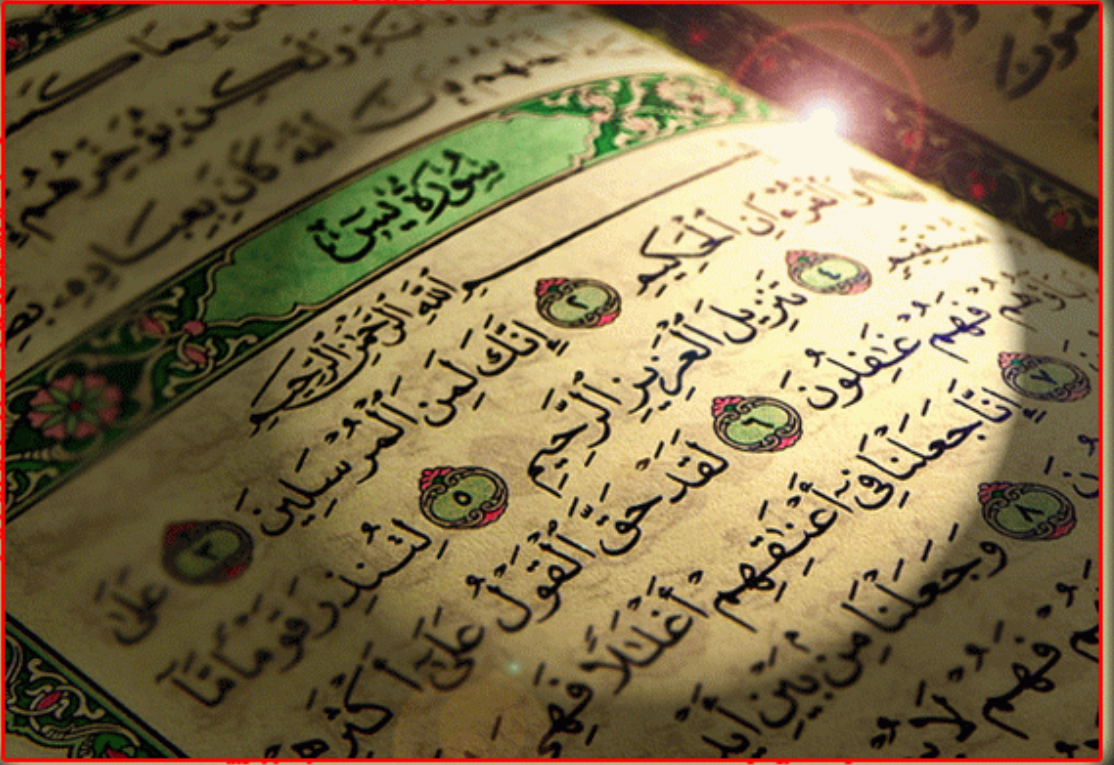 بِمَا
وَلَٰكِن يُؤَخِّرُهُمْ
ٱللَّهَ كَانَ بِعِبَادِهِۦ
سُورَةُ يسٓ
بِسْمِ ٱللَّهِ ٱلرَّحْمَٰنِ ٱلرَّحِيمِ
وَٱلْقُرْءَانِ ٱلْحَكِيمِ ٢ إِنَّكَ لَمِنَ ٱلْمُرْسَلِينَ ٣ عَلَىٰ
مُّسْتَقِيمٍ ٤ تَنزِيلَ ٱلْعَزِيزِ ٱلرَّحِيمِ ٥ لِتُنذِرَ قَوْمًا مَّآ
فَهُمْ غَٰفِلُونَ ٦ لَقَدْ حَقَّ ٱلْقَوْلُ عَلَىٰٓ أَكْثَرِهِ
٧ إِنَّا جَعَلْنَا فِىٓ أَعْنَٰقِهِمْ أَغْلَٰلًا فَهِىَ
٨ وَجَعَلْنَا مِنۢ بَيْنِ أَيْدِ
فَهُمْ لَا